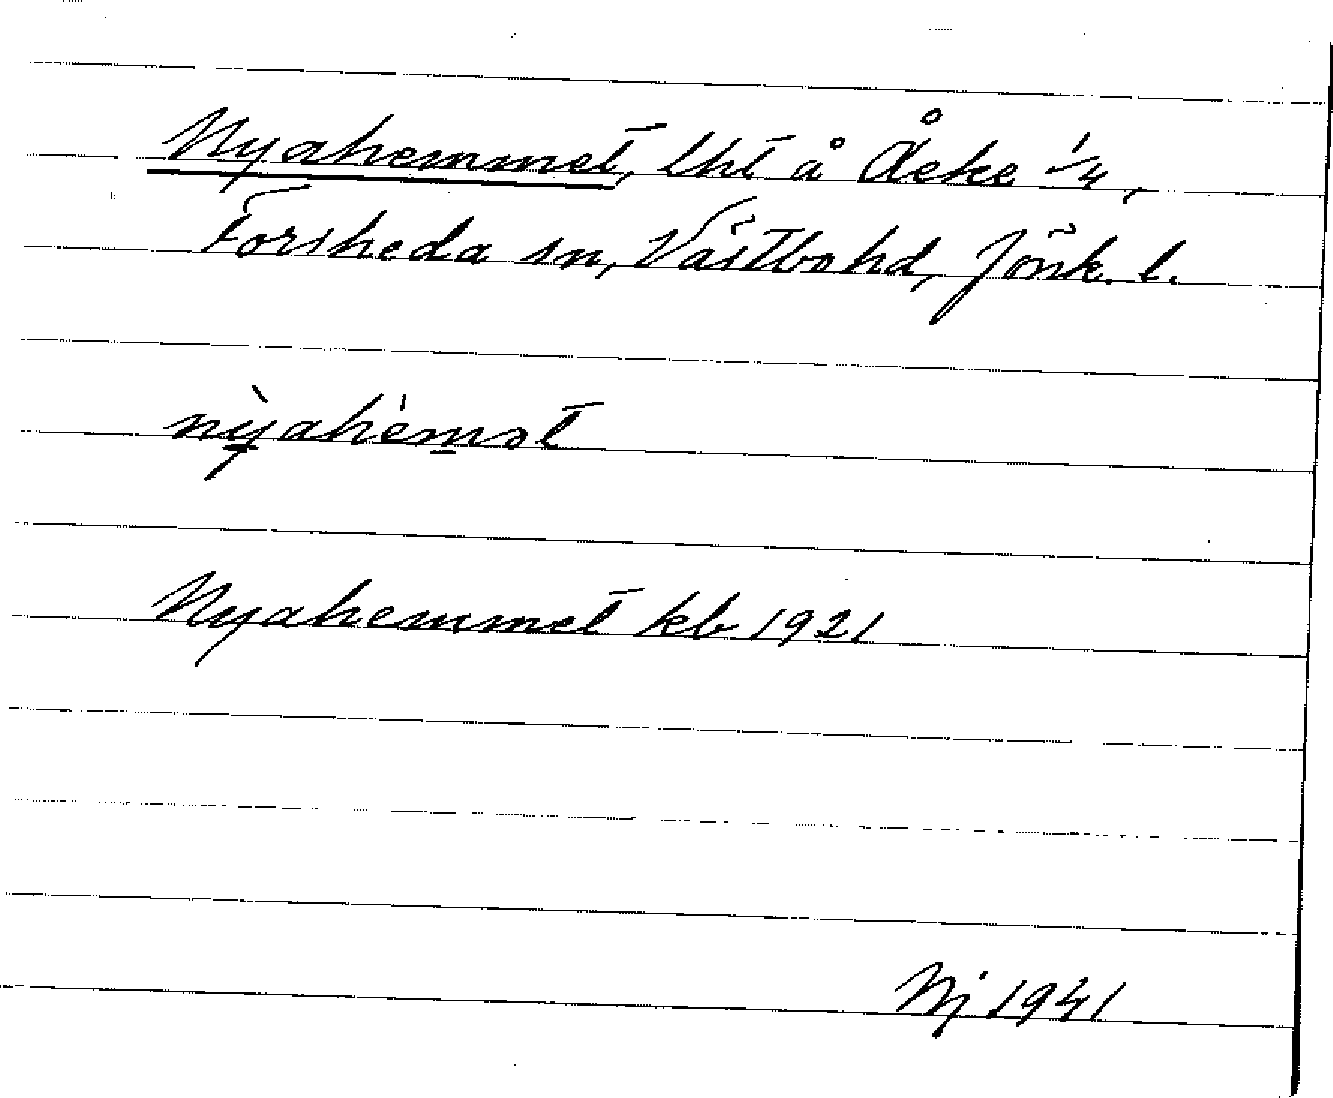 Nyahemmet, lht å Åeke 1/4,
Forsheda sn, Västbo hd, Jönk. l.
nỳahémət
Nyahemmet kb 1921
Nj 1941